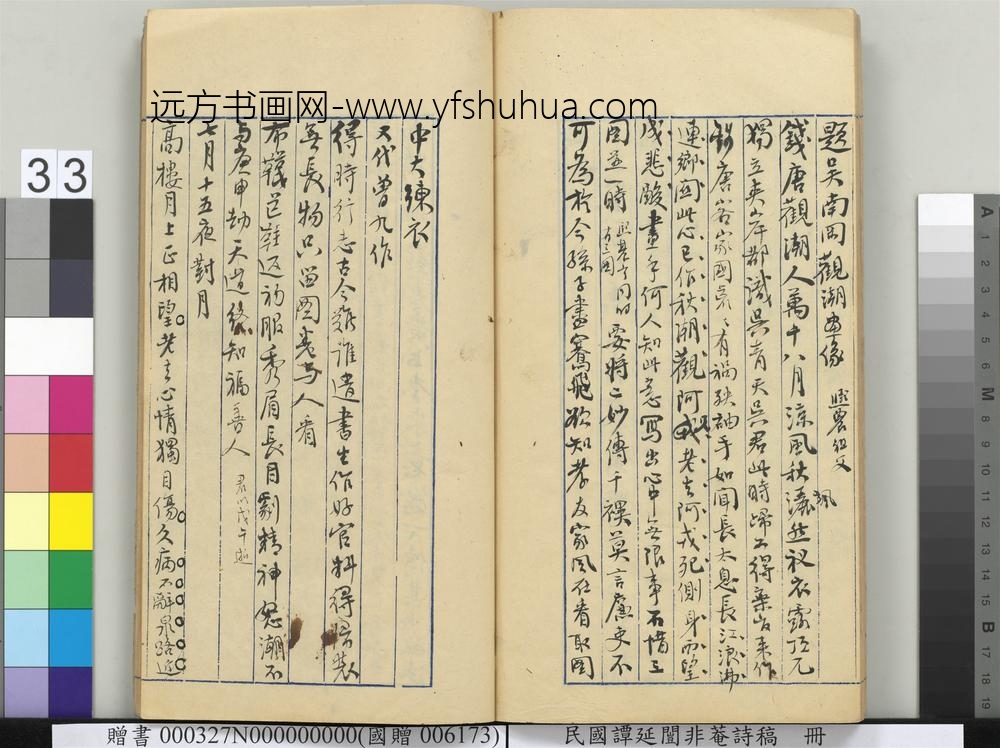 远方书画网-www.yfshuhua.com
33
題吳南岡觀潮画像
錢唐觀潮人萬千八月涼風秋灑然衩衣露頂兀
獨立夹岸都識吳青天吳君此時歸不得棄官来作
錢唐客家國 有禍 袖手如聞長太息長江浪沸
連鄉國此心已作秋潮觀阿 老去阿戎死側身西望
成悲酸畫手何人知此意寫出心中無限事不惜三
圖 一時 要將二妙傳千禩莫言廉吏不
可為於今孫子盡騫飛欲知孝友家風在看取圖
中大練衣
又代曾九作
得時行志古今難誰遣書生作好官料得歸裝
無長物只留圖畫与人看
布韈芒鞵返初服秀眉長目 精神怒潮不
与庚申劫天道終知福善人 君以戊午逝
七月十五夜對月
高樓月上正相望老去心情獨自傷久病不辭泉路近
贈書 000327N000000000(國贈 006173)
民國譚延闓非菴詩稿 冊
A 1 2 3 4 5 6 M 8 9 10 11 12 13 14 15 B 17 18 19